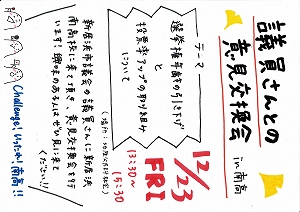 議員さんとの
意見交換会
in 南高
テーマ
選挙権年齢の引き下げ
と
投票率アップの取り組み
について
12/23
FRI
13:30～
15:30
新居浜市議会の議員さんに新居浜
南高校に来て頂き、意見交換会を行
います！興味のある人はぜひ見に来て
ください!!
Challenge! いっしょに 南高!!